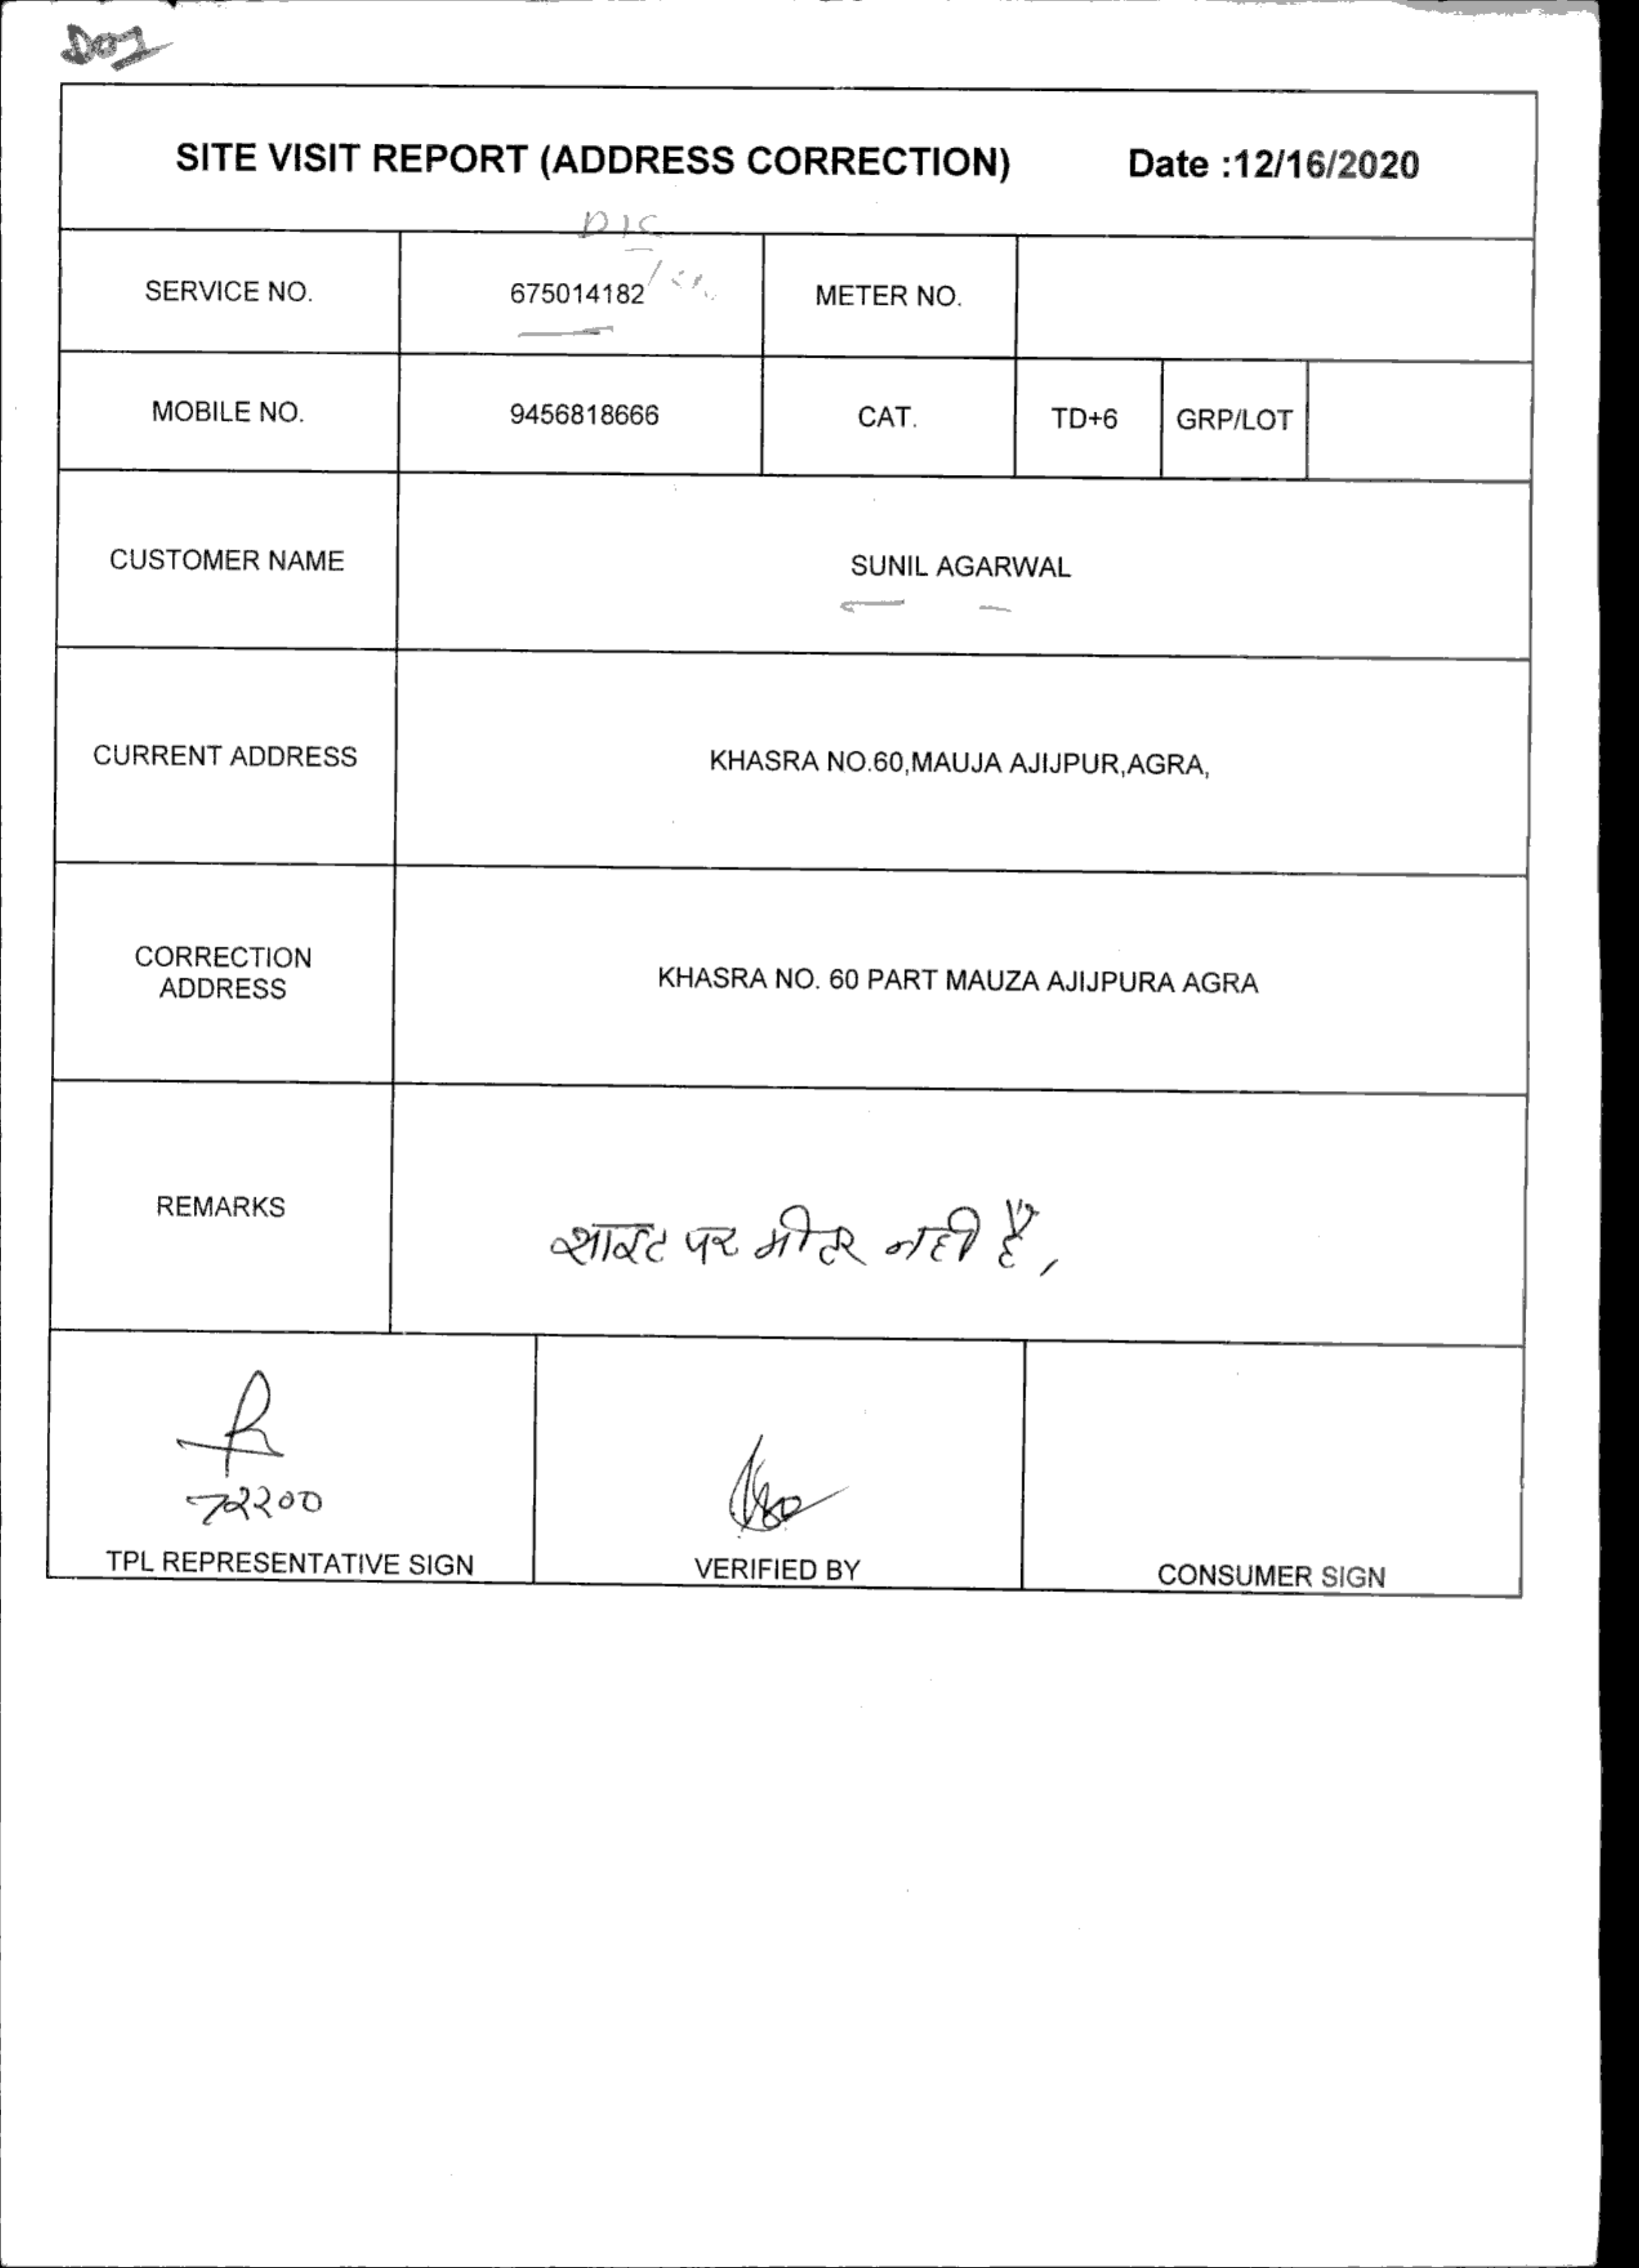 SITE VISIT REPORT (ADDRESS CORRECTION) Date :12/16/2020
D/C
SERVICE NO. 675014182 METER NO.
MOBILE NO. 9456818666 CAT. TD+6 GRP/LOT
CUSTOMER NAME SUNIL AGARWAL
CURRENT ADDRESS KHASRA NO.60,MAUJA AJIJPUR,AGRA,
CORRECTION
ADDRESS
KHASRA NO. 60 PART MAUZA AJIJPURA AGRA
REMARKS साइट पर मीटर नही है,
72200
TPL REPRESENTATIVE SIGN VERIFIED BY CONSUMER SIGN